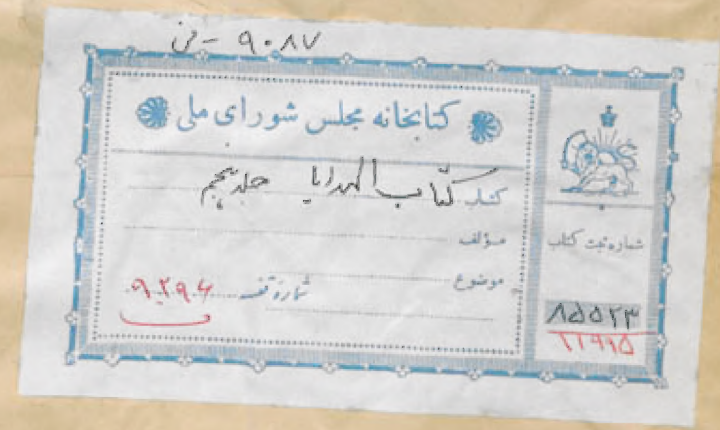 ۹۰۸۷ - فن
کتابخانه مجلس شورای ملی
کتاب کتاب الهدایا جلد پنجم
مؤلف
موضوع
شماره قفسه
شماره ثبت کتاب
۸۵۵۲۳